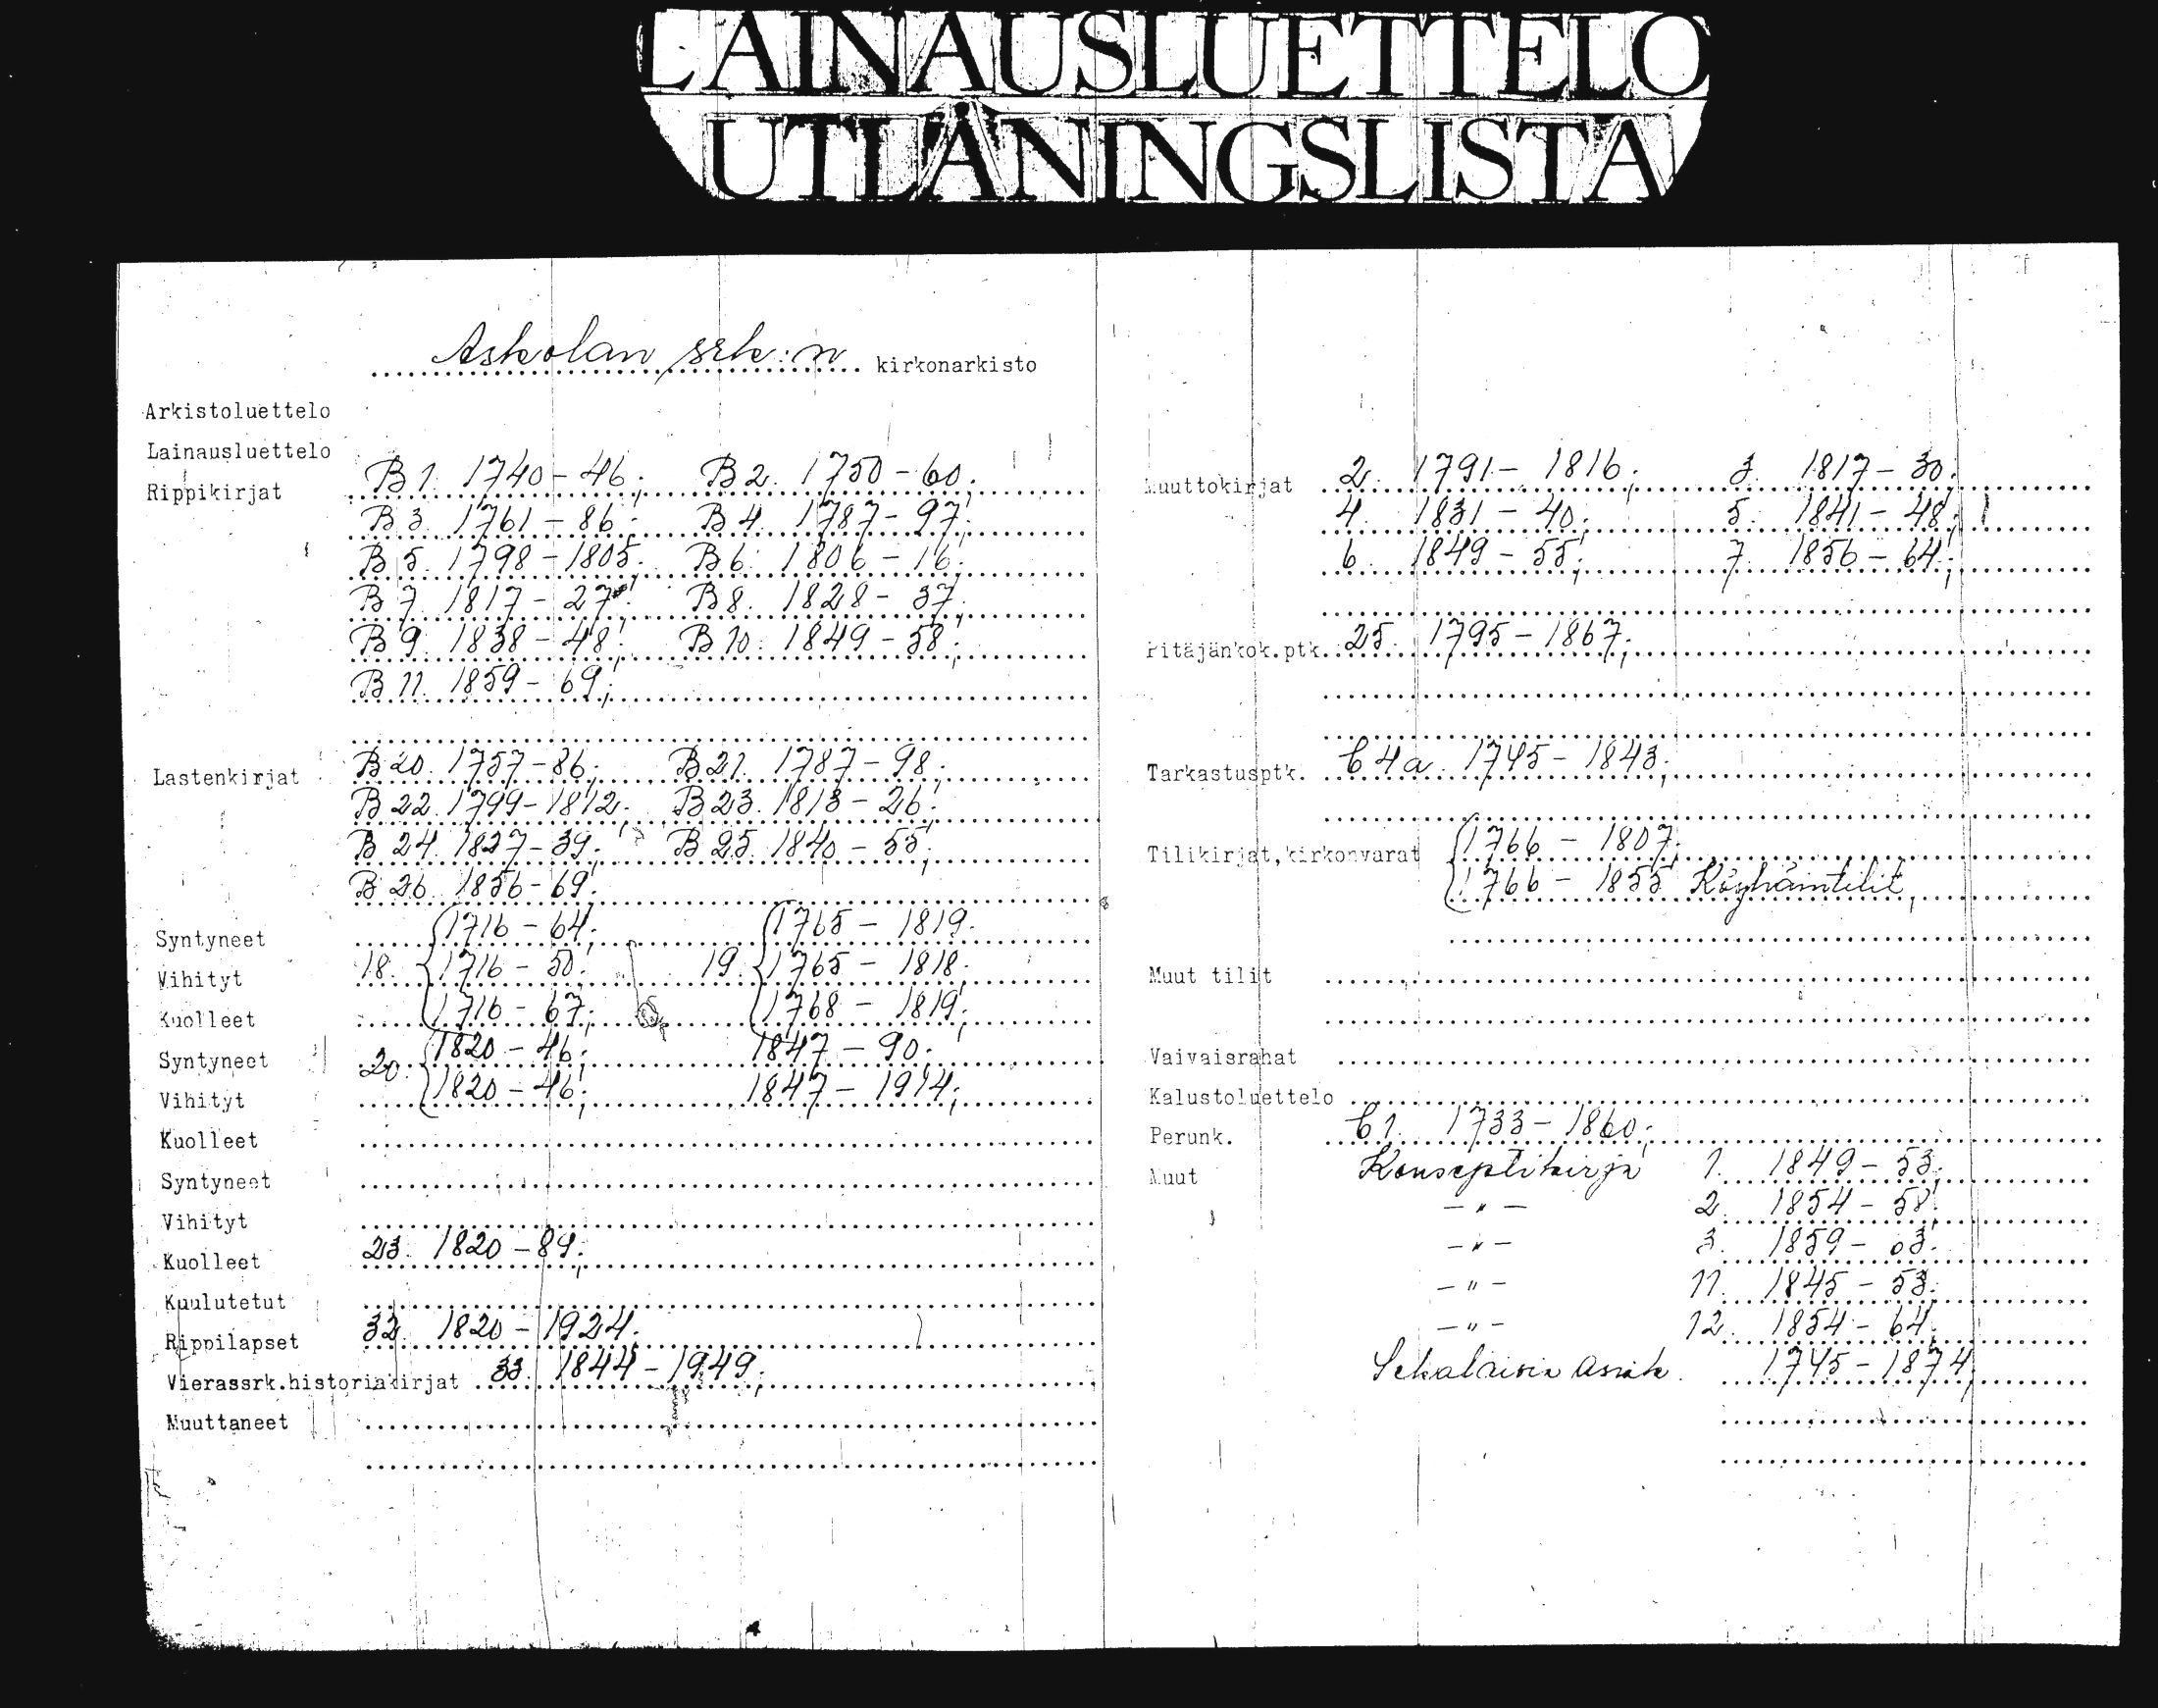 LAINAUSLUETTELO
UTLÅNINGSLISTA
Askolan srk:n kirkonarkisto
Arkistoluettelo
Lainausluettelo
Rippikirjat B 1. 1740-46; B 2. 1750-60;
B 3. 1761-86; B 4. 1787-97;
B 5. 1798-1805; B 6. 1806-16;
B 7. 1817-27; B 8. 1828-37;
B 9. 1838-48; B 10. 1849-58;
B 11. 1859-69;
Lastenkirjat B 20. 1757-86; B 21. 1787-98;
B 22. 1799-1812; B 23. 1813-26;
B 24. 1827-39; B 25. 1840-55;
B 26. 1856-69;
Syntyneet 1716-64; 1765-1819;
Vihityt 18. 1716-50; 19. 1765-1818;
Kuolleet 1716-67; 1768-1819;
Syntyneet 20. 1820-46; 1847-90;
Vihityt 1820-46; 1847-1914;
Kuolleet
Syntyneet
Vihityt
Kuolleet 23. 1820-89;
Kuulutetut
Rippilapset 32. 1820-1924.
Vierassrk.historiakirjat 33. 1844-1949;
Muuttaneet
Muuttokirjat 2. 1791-1816; 3. 1817-30;
4. 1831-40; 5. 1841-48;
6. 1849-55; 7. 1856-64;
Pitäjänkok.ptk. 25. 1795-1867;
Tarkastusptk. C 4 a. 1745-1843;
Tilikirjat,kirkonvarat 1766-1807;
1766-1855
Muut tilit
Vaivaisrahat
Kalustoluettelo
Perunk. C 1. 1733-1860;
Muut Konseptikirja 1. 1849-53;
-"- 2. 1854-58;
-"- 3. 1859-63;
-"- 11. 1845-53;
-"- 12. 1854-64;
Sekalaisia asiak. 1745-1874